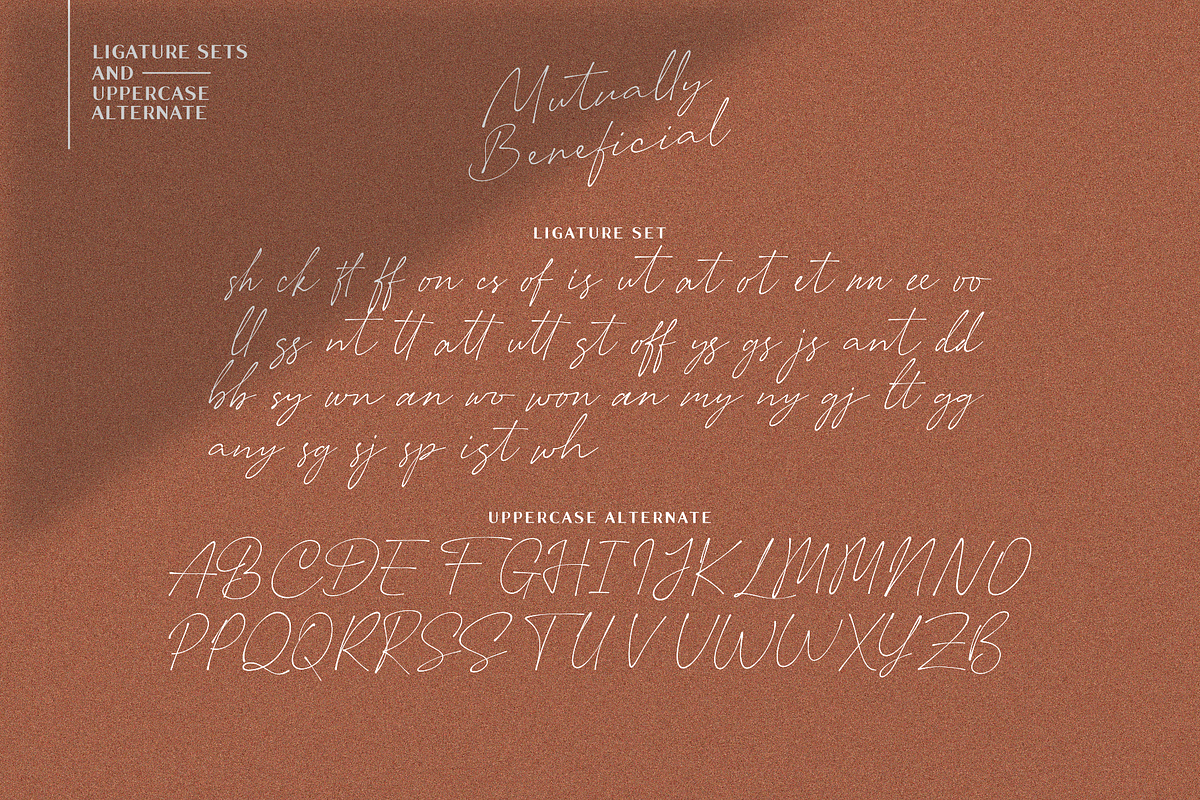 LIGATURE SETS
AND
UPPERCASE
ALTERNATE
Mutually
Beneficial
LIGATURE SET
sh ck ft ff on cs of is ut at ot et nn ee oo
ll ss nt tt att utt st off ys gs js ant dd
bb sy wn an wo won an my ny gj lt gg
any sg sj sp ist wh
UPPERCASE ALTERNATE
ABCDEFGHIIJKLMMNNO
PPQQRRSSTUVUWWXYZB